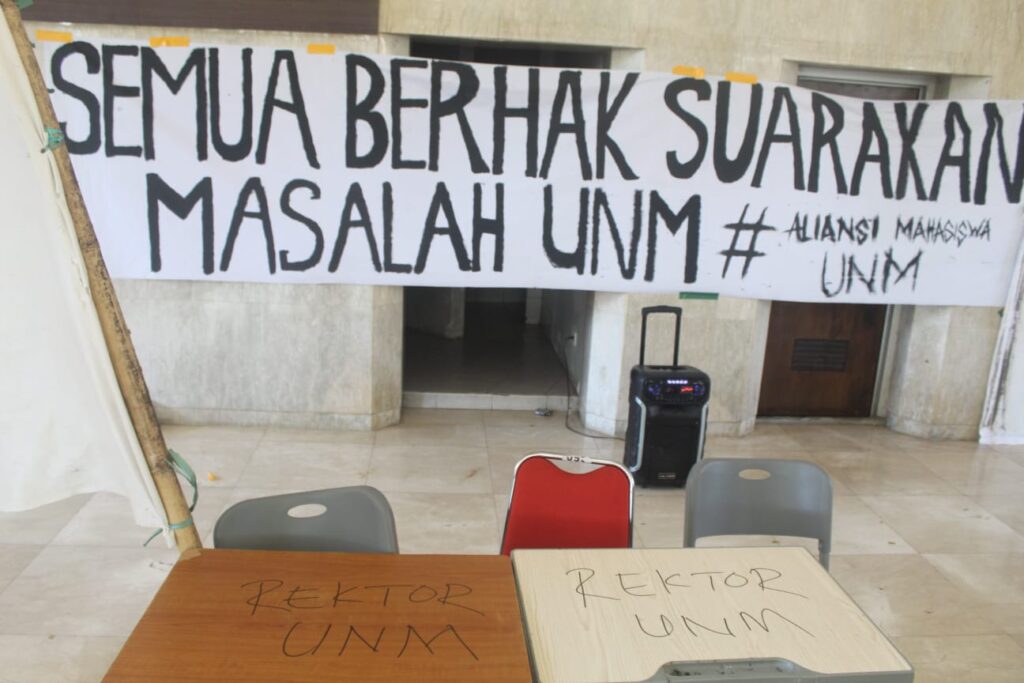 SEMUA BERHAK SUARAKAN
MASALAH UNM # ALIANSI MAHASISWA
UNM
REKTOR
UNM
REKTOR
UNM